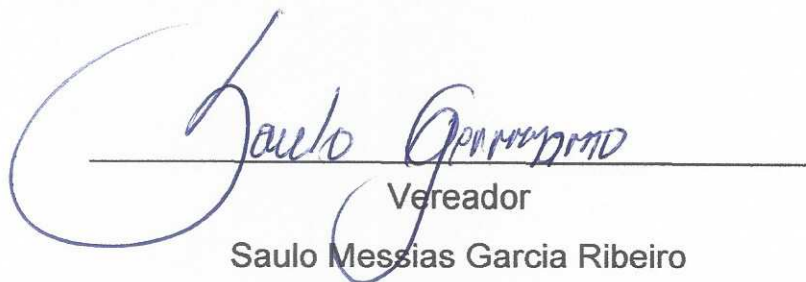 Saulo
Vereador
Saulo Messias Garcia Ribeiro